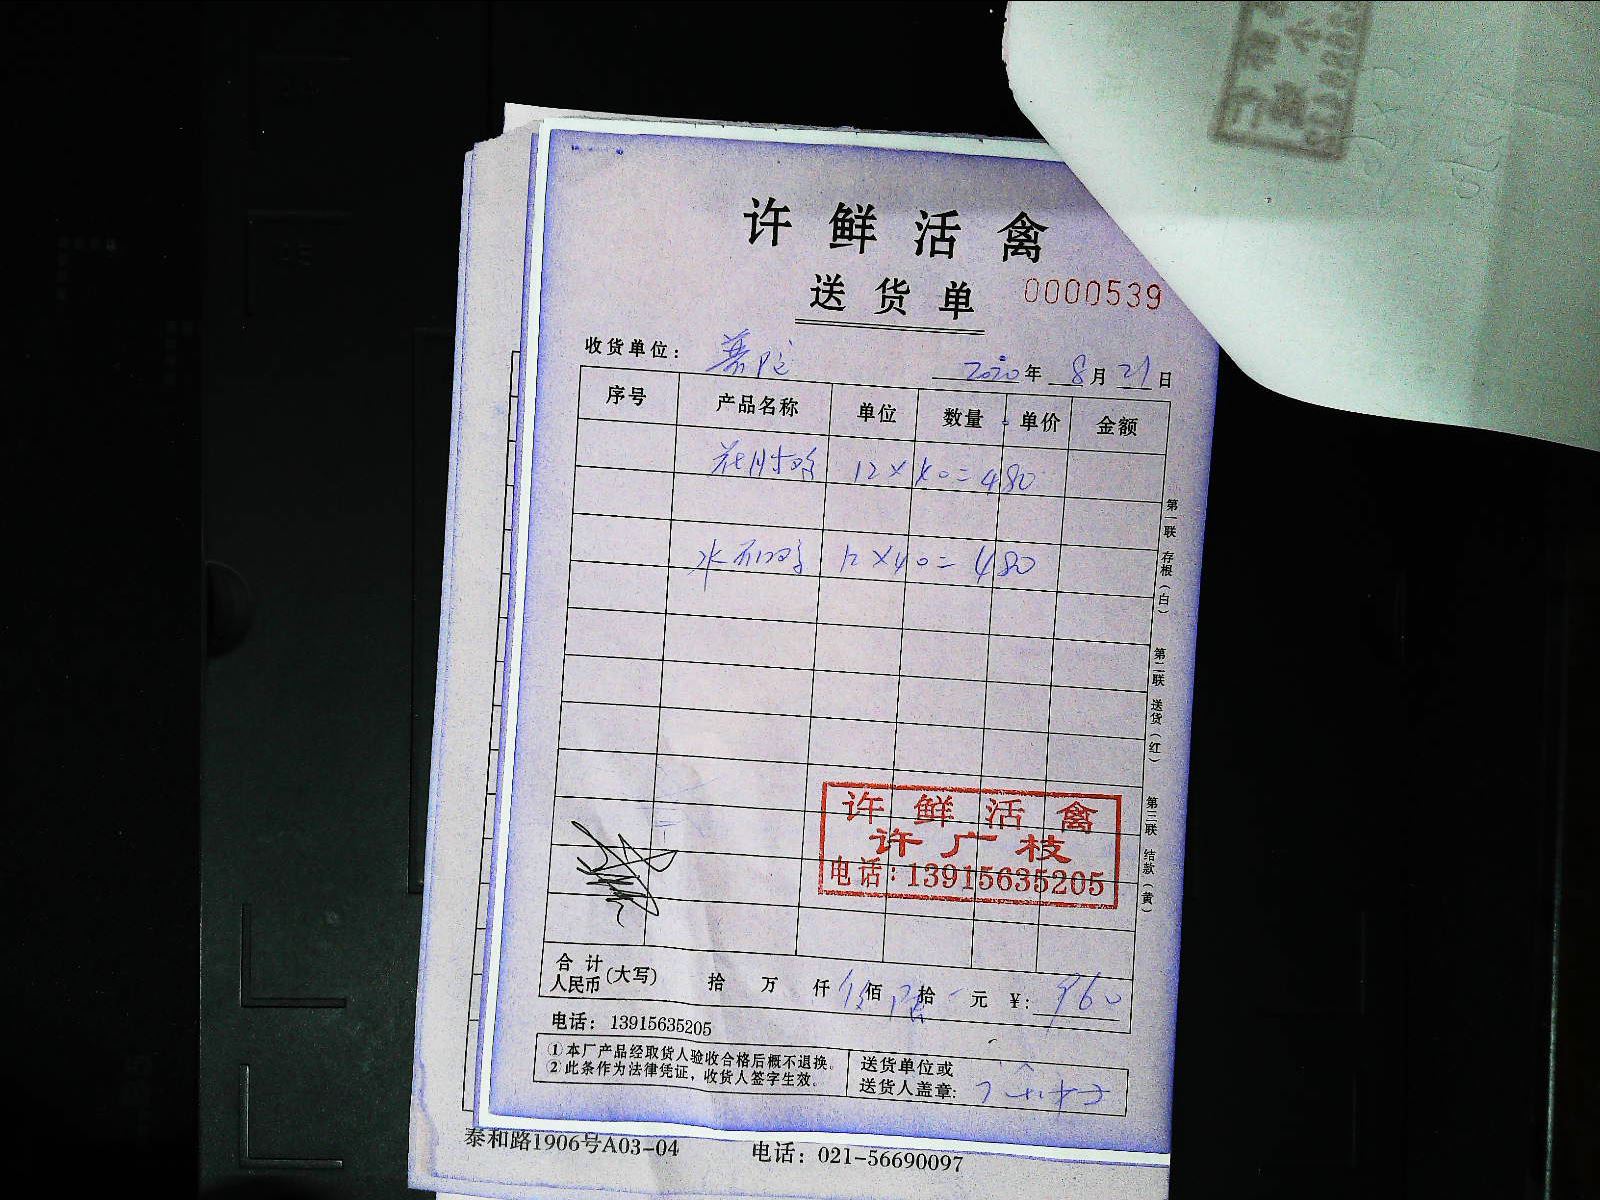 许鲜活禽
送货单 0000539
收货单位：
2020年 8月 21日
序号 产品名称 单位 数量 单价 金额
12×40=480
12×40=480
第一联 存根（白）
第二联 送货（红）
第三联 结款（黄）
许鲜活禽
许广枝
电话：13915635205
合计人民币（大写） 拾 万 仟 佰 拾 元 ¥：960
电话：13915635205
①本厂产品经取货人验收合格后概不退换。
②此条作为法律凭证，收货人签字生效。
送货单位或
送货人盖章：
泰和路1906号A03-04 电话：021-56690097